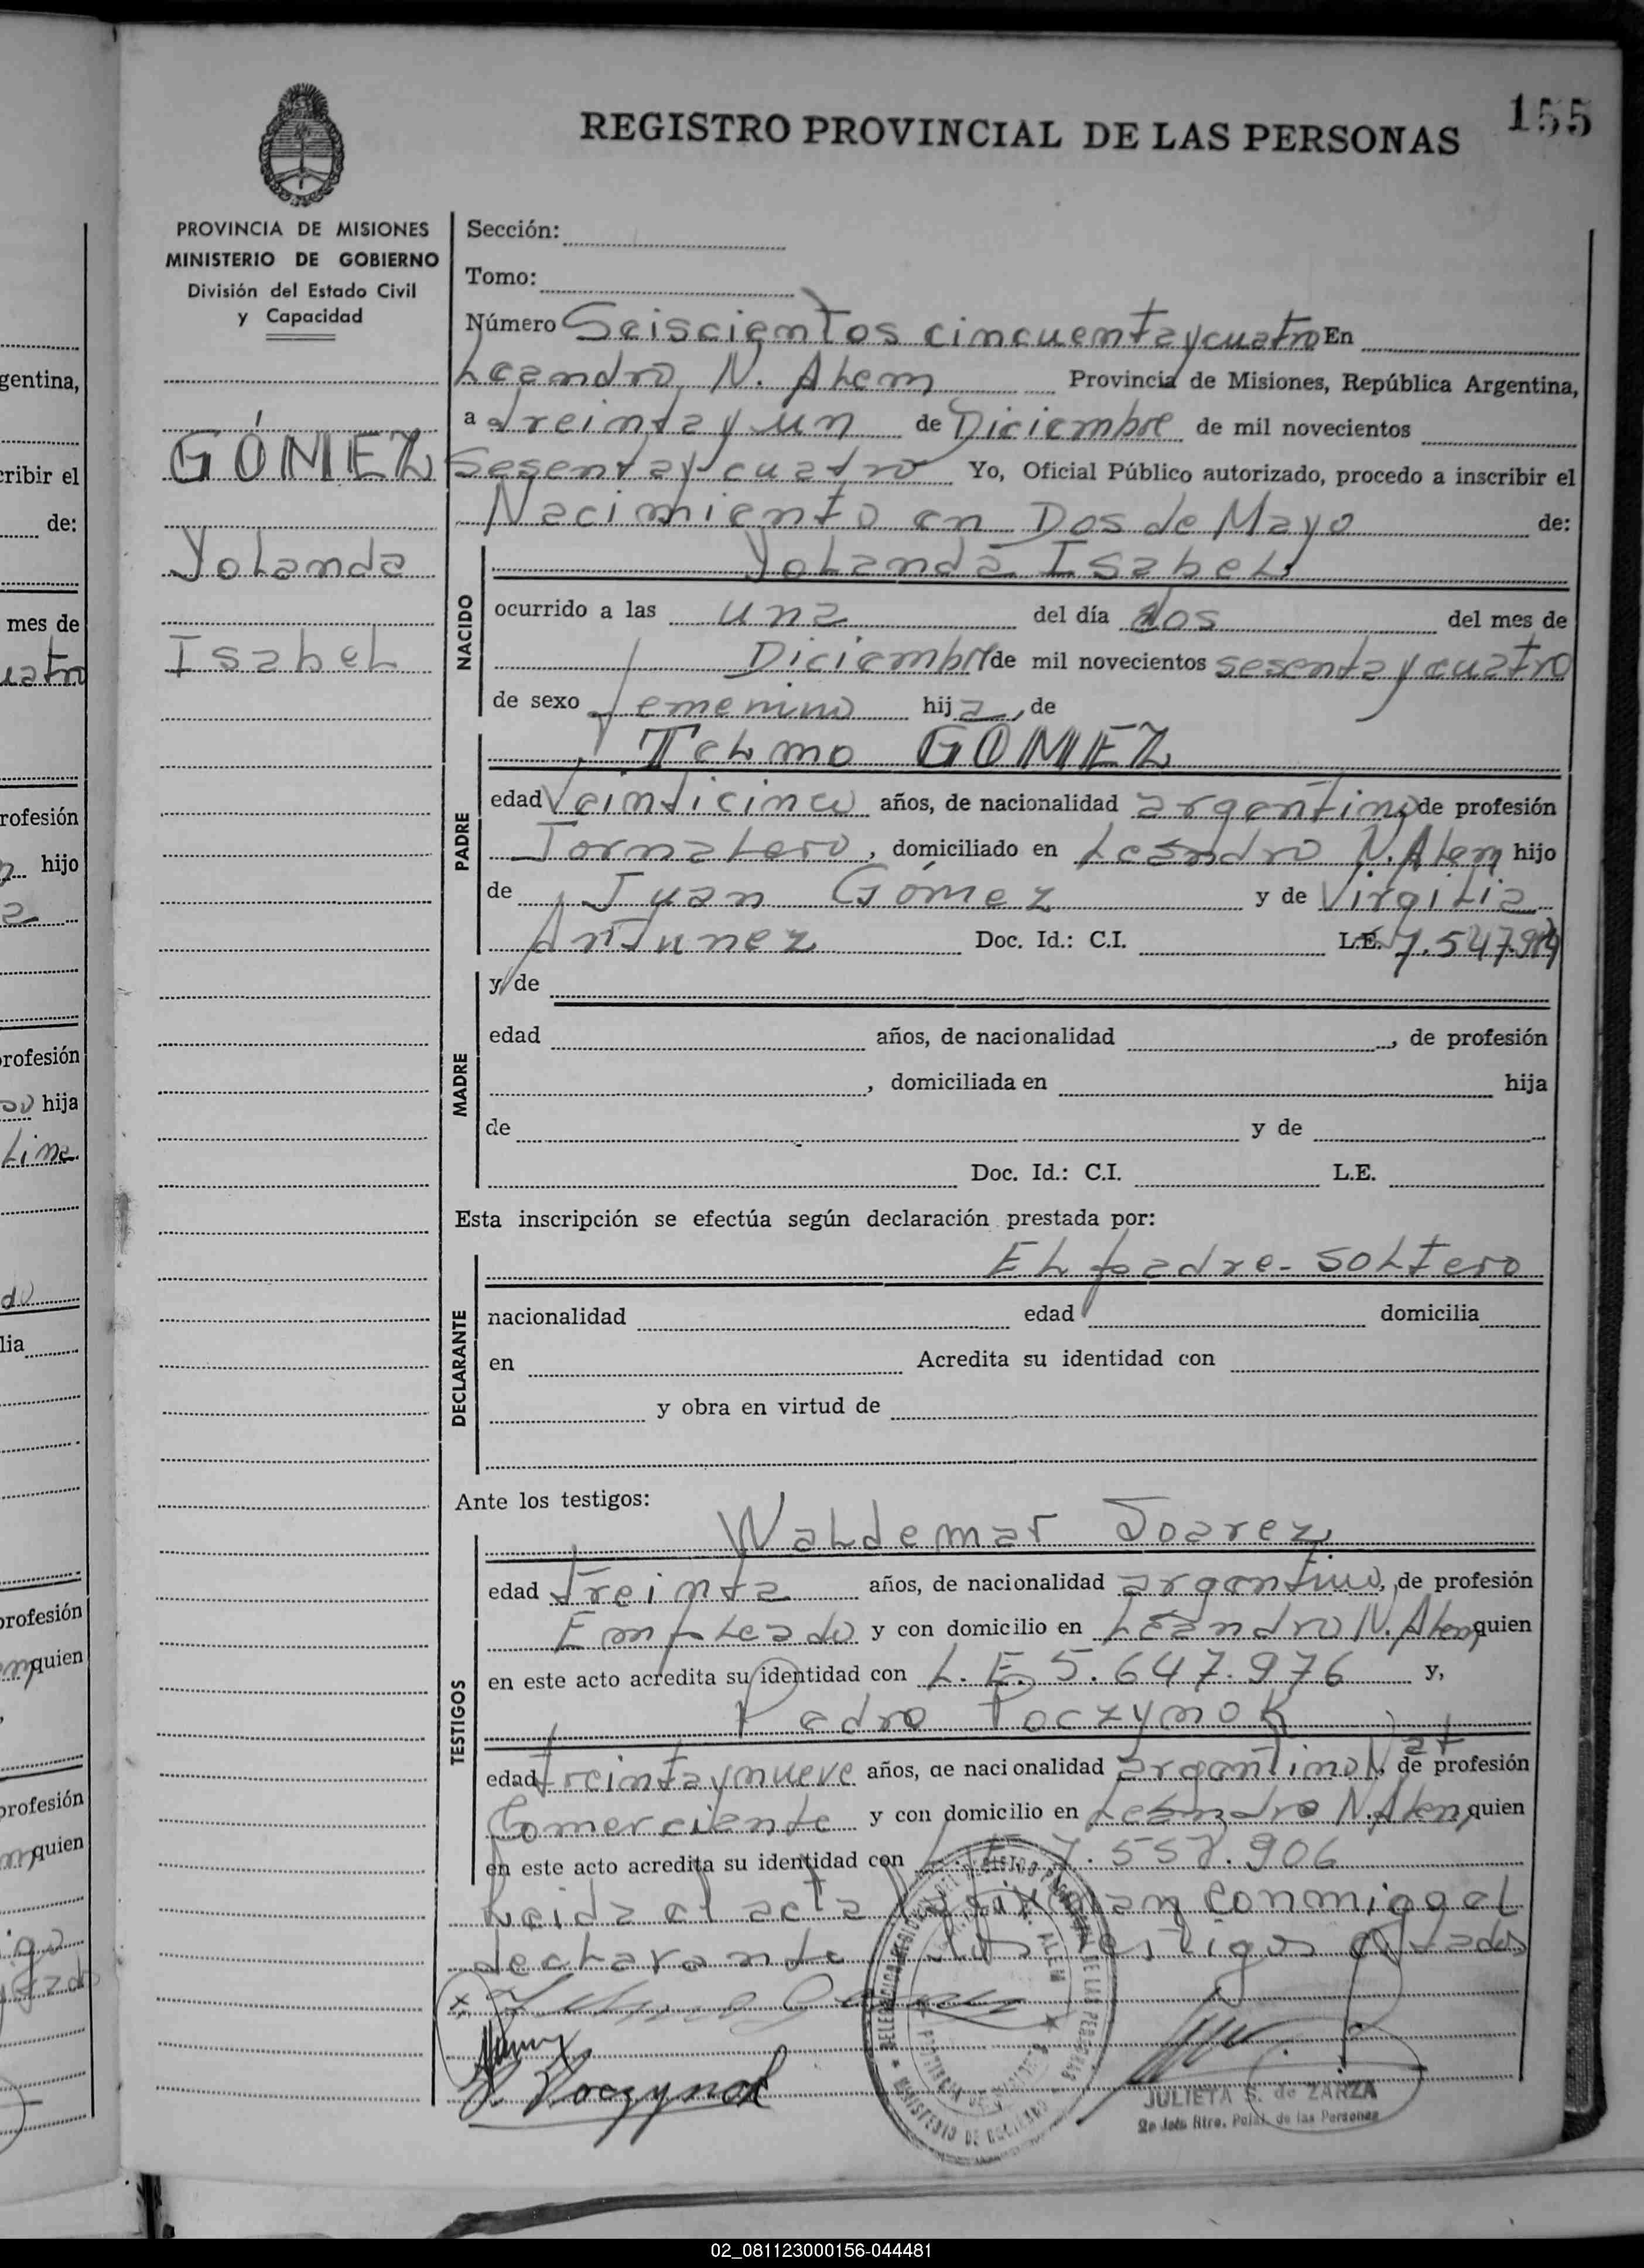 155
REGISTRO PROVINCIAL DE LAS PERSONAS
PROVINCIA DE MISIONES
MINISTERIO DE GOBIERNO
División del Estado Civil
y Capacidad
GÓMEZ
Yolanda
Isabel
Sección:
Tomo:
Número Seiscientos cincuenta y cuatro En
Leandro N. Alem Provincia de Misiones, República Argentina,
a treinta y un de Diciembre de mil novecientos
sesenta y cuatro Yo, Oficial Público autorizado, procedo a inscribir el
Nacimiento en Dos de Mayo de:
NACIDO
Yolanda Isabel
ocurrido a las una del día dos del mes de
Diciembre de mil novecientos sesenta y cuatro
de sexo femenino hija, de
PADRE
Telmo GÓMEZ
edad Veinticinco años, de nacionalidad argentino de profesión
Jornalero, domiciliado en Leandro N. Alem hijo
de Juan Gómez y de Virgilia
Antunez Doc. Id.: C.I. L.E.
MADRE
y de
edad años, de nacionalidad , de profesión
, domiciliada en hija
de y de
Doc. Id.: C.I. L.E.
Esta inscripción se efectúa según declaración prestada por:
DECLARANTE
El padre - soltero
nacionalidad edad domicilia
en Acredita su identidad con
y obra en virtud de
Ante los testigos:
TESTIGOS
Waldemar Soarez
edad treinta años, de nacionalidad argentino, de profesión
Empleado y con domicilio en Leandro N. Alem quien
en este acto acredita su identidad con L. E. 5.647.976 y,
Pedro Poczynok
edad treinta y nueve años, de nacionalidad argentino Nat de profesión
Comerciante y con domicilio en Leandro N. Alem quien
en este acto acredita su identidad con L. E. 7.558.906
Leida el acta la firman conmigo el
declarante y los testigos citados
P. Poczynok
JULIETA S. de ZARZA
de las Personas
gentina,
cribir el
de:
mes de
uatro
rofesión
hijo
profesión
hija
Lina
lia
profesión
quien
profesión
quien
02_081123000156-044481